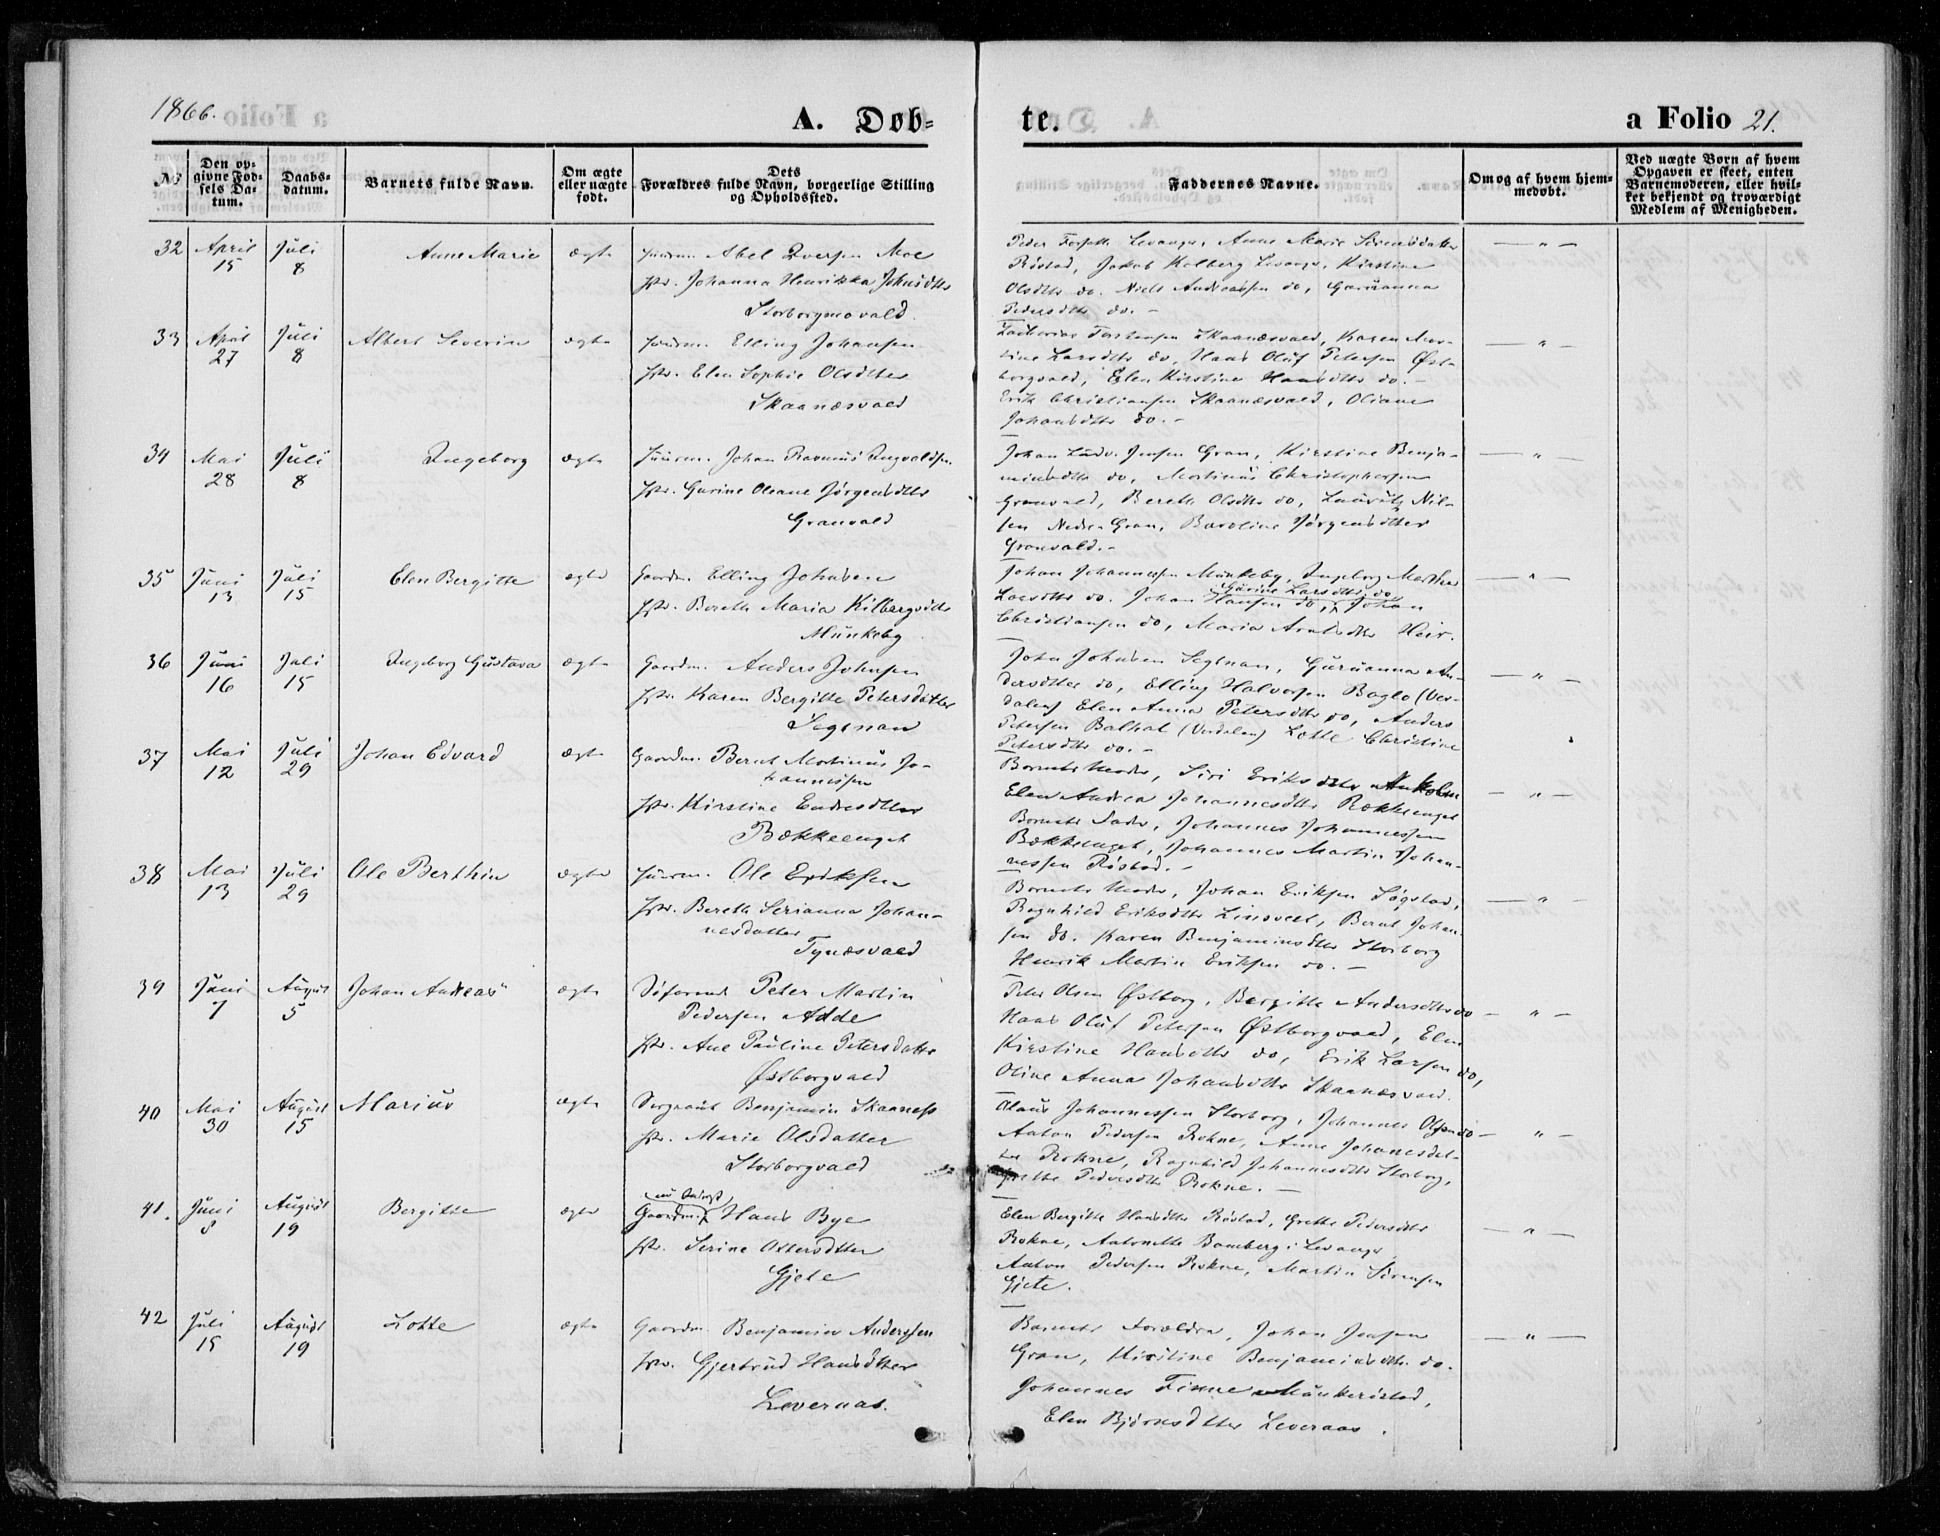 1866.
A. Døb-
te.
a Folio 21.
No
Den op-
givne Fød-
sels Da-
tum.
Daabs-
datum.
Barnets fulde Navn.
Om ægte
eller uægte
født.
Dets
Forældres fulde Navn, borgerlige Stilling
og Opholdssted.
Faddernes Navne.
Om og af hvem hjem-
medøbt.
Ved uægte Børn af hvem
Opgaven er skeet, enten
Barnemoderen, eller hvil-
ket bekjendt og troværdigt
Medlem af Menigheden.
32 April 15 Juli 8 Anne Marie ægte Huusm. Abel Iversen Moe
Hstr. Johanna Henrikka Johnsdtter
Storborgmovald
Peder Forseth Levanger, Anne Marie Sørensdatter
Røstad, Jakob Kolberg Levanger, Kirstine
Olsdtter do. Niels Andreassen do, Guruanna
Pedersdtr do. -
33 April 27 Juli 8 Albert Severin ægte Huusm. Elling Johansen
Hstr. Elen Sophie Olsdtter
Skaanæsvald
Zacharias Torstensen Skaanæsvald, Karen Mar-
tine Larsdtr do, Hans Oluf Petersen Øst-
borgvald, Elen Kirstine Hansdtr do. -
Erik Christiansen Skaanæsvald, Oliane
Johansdtr do. -
34 Mai 28 Juli 8 Ingeborg ægte Huusm. Johan Rasmus Ingvaldsen
Hstr. Gurine Oliane Jørgensdtter
Granvald
Johan Ludv. Jensen Gran, Kirstine Benja-
minsdtr do, Martinus Christophersen
Granvald, Bereth Olsdtr do, Lauritz Nil-
sen Nedre Gran, Baroline Jørgensdtter
Granvald. -
35 Juni 13 Juli 15 Elen Bergitte ægte Gaardm. Elling Johnsen
Hstr. Bereth Maria Kilbergsdtr
Munkeby
Johan Johannessen Munkeby, Ingeborg Martha
Larsdtr do. Johan Hansen do, Gurine Larsdtr do, Johan
Christiansen do, Maria Arntsdtr Heir.
36 Juni 16 Juli 15 Ingeborg Gustava ægte Gaardm. Anders Johnsen
Hstr. Karen Bergitte Petersdatter
Segtnan
John Johnsen Segtnan, Guruanna An-
dersdtter do, Elling Halvorsen Baglo (Ver-
dalen) Elen Anna Petersdtr do, Anders
Petersen Balhal (Verdalen) Lotte Christine
Petersdtr do. -
37 Mai 12 Juli 29 Johan Edvard ægte Gaardm. Bernt Martinus Jo-
hannessen
Hstr. Kirstine Endresdtter
Bækkeenget
Barnets Moder, Siri Eriksdtter Ankolm
Elen Andrea Johannesdtr Bækkeenget
Barnets Fader, Johannes Johannessen
Bækkeenget, Johannes Martin Johan-
nessen Røstad. -
38 Mai 13 Juli 29 Ole Berthin ægte Huusm. Ole Eriksen
Hstr. Bereth Serianna Johan-
nesdatter
Tynæsvald
Barnets Moder, Johan Eriksen Søgstad,
Ragnhild Eriksdtter Linsveet, Bernt Johan-
sen do. Karen Benjaminsdtr Storborg
Henrik Martin Eriksen do. -
39 Juni 7 August 5 Johan Andreas ægte Søfarend Peter Martin
Pedersen Adde
Hstr. Ane Pauline Petersdatter
Østborgvald
Peter Olsen Østborg, Bergitte Andersdtter do
Hans Oluf Petersen Østborgvald, Elen
Kirstine Hansdtter do, Erik Larsen do,
Oline Anna Johansdtr Skaanæsvald.
40 Mai 30 August 15 Marius ægte Sergeant Benjamin Skaanæss
Hstr. Marie Olsdatter
Storborgvald
Olaus Johannessen Storborg, Johannes Olsen do
Anton Pedersen Rokne, Anne Johannesdat-
ter Rokne, Ragnhild Johannesdtr Storborg,
Grethe Pedersdtr Rokne. -
41. Juni 8 August 19 Bergitte ægte Gaardm. Hans Bye
Hstr. Serine Ottersdtter
Gjete
Elen Bergitte Hansdtr Røstad, Grethe Pedersdtr
Rokne, Antonette Bomberg i Levanger,
Anton Pedersen Rokne, Martin Sørensen
Gjete.
42 Juli 15 August 19 Lotte ægte Gaardm. Benjamin Anderssen
Hstr. Gjertrud Hansdtter
Leveraas.
Barnets Forældre, Johan Jensen
Gran, Kirstine Benjaminsdtr. do.
Johannes Finne Munkerøstad,
Elen Bjørnsdtter Leveraas.